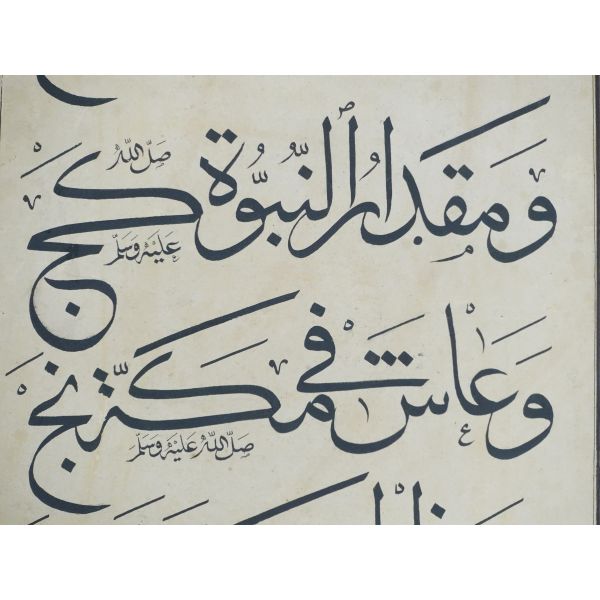 ومقدار النبوة كج
صل الله
عليه وسلم
وعاش في مكة نج
صل الله عليه وسلم